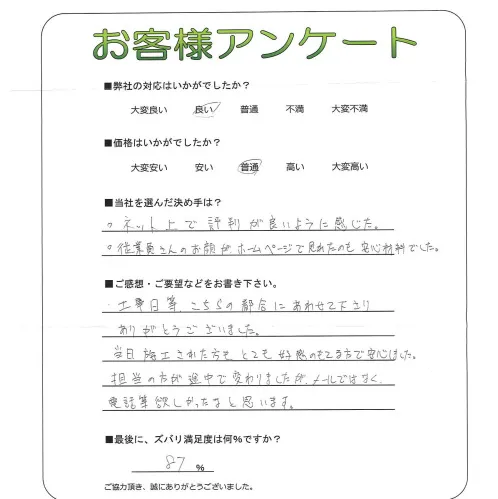 お客様アンケート
■弊社の対応はいかがでしたか?
大変良い 良い 普通 不満 大変不満
■価格はいかがでしたか?
大変安い 安い 普通 高い 大変高い
■当社を選んだ決め手は?
○ネット上で評判が良いように感じた。
○従業員さんのお顔が、ホームページで見れたのも安心材料でした。
■ご感想・ご要望などをお書き下さい。
・工事日等、こちらの都合にあわせて下さり
ありがとうございました。
当日施工された方もとても好感のもてる方で安心しました。
担当の方が途中で変わりましたが、メールではなく、
電話等欲しかったなと思います。
■最後に、ズバリ満足度は何%ですか?
87 %
ご協力頂き、誠にありがとうございました。